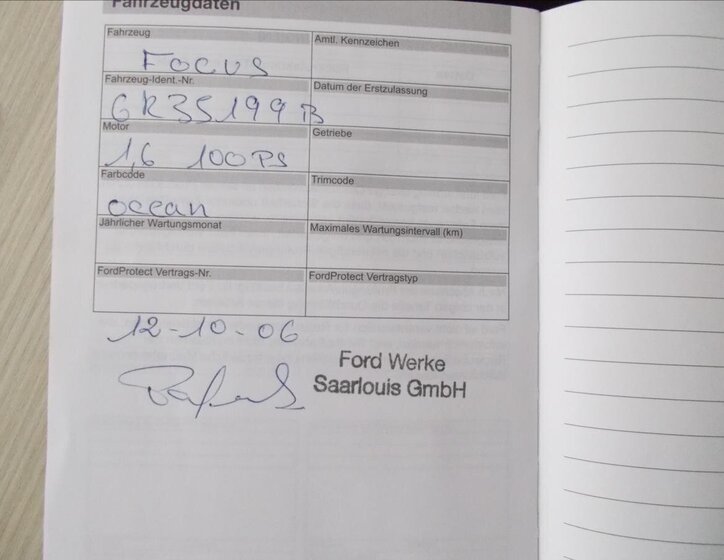 Fahrzeugdaten
Fahrzeug
Focus
Amtl. Kennzeichen
Fahrzeug-Ident.-Nr.
6R35199B
Datum der Erstzulassung
Motor
1,6 100PS
Getriebe
Farbcode
ocean
Trimcode
Jährlicher Wartungsmonat
Maximales Wartungsintervall (km)
FordProtect Vertrags-Nr.
FordProtect Vertragstyp
12-10-06
Ford Werke
Saarlouis GmbH